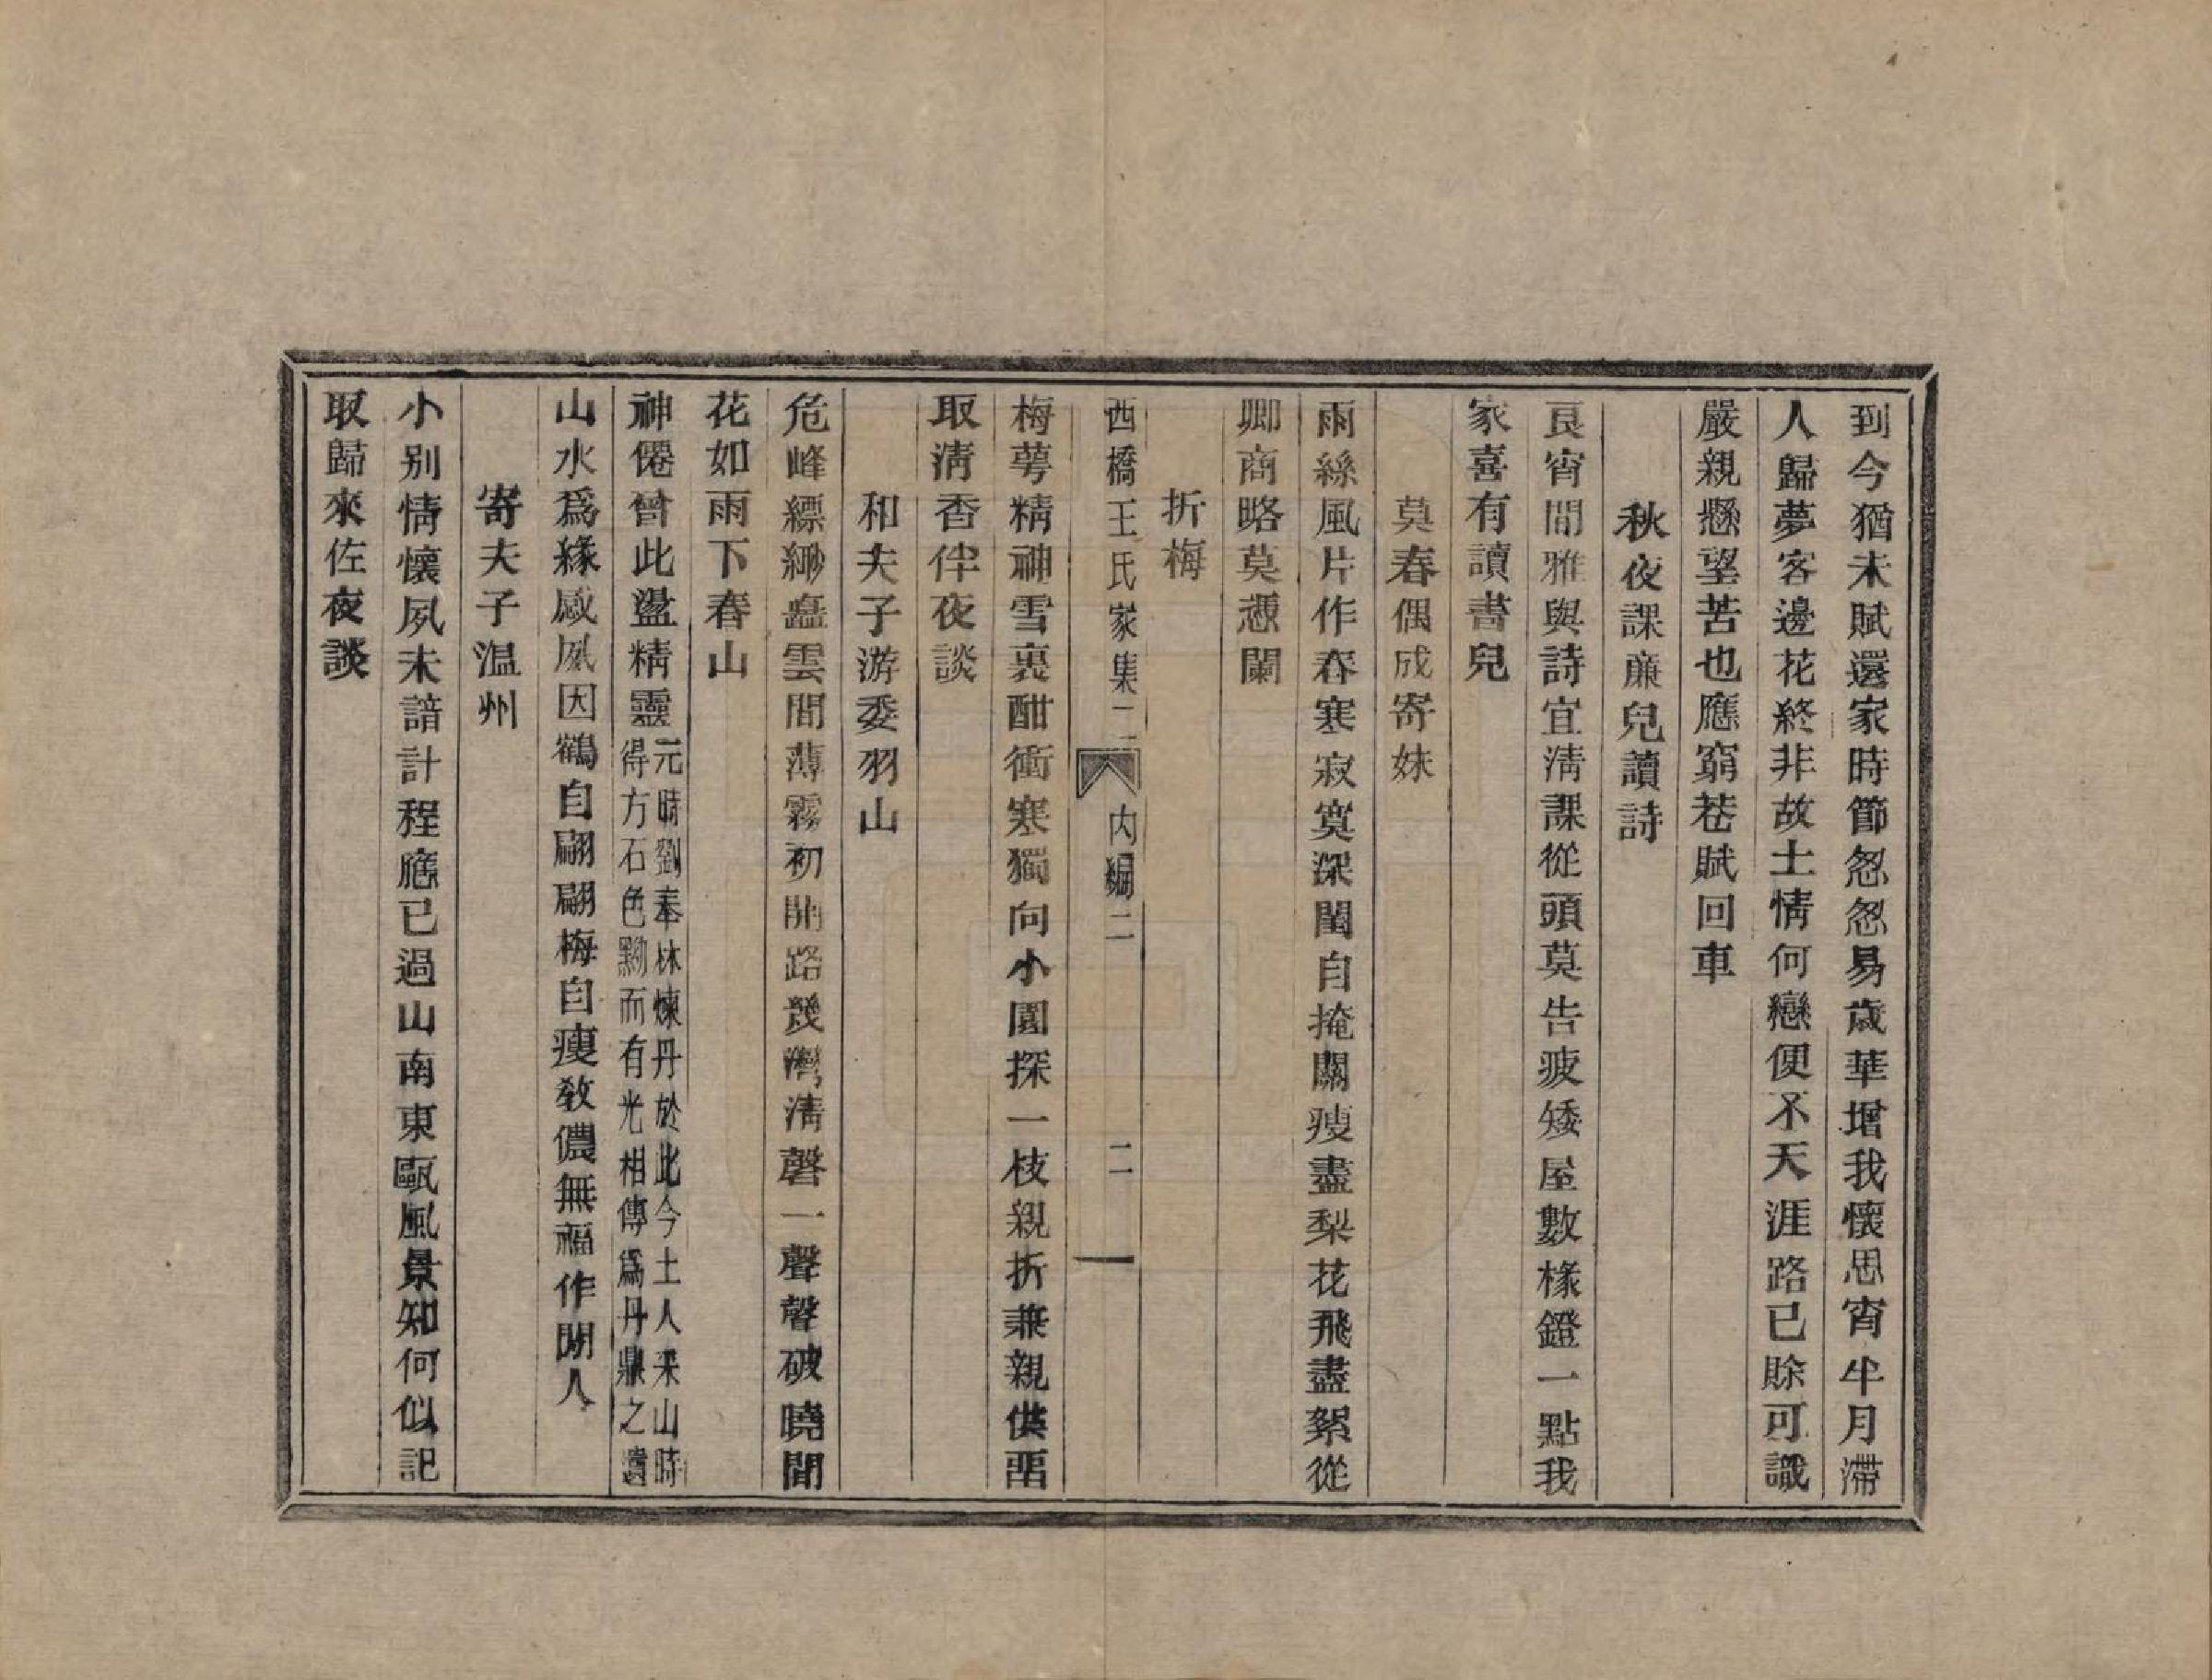 到今猶未賦還家時節怱怱易歲華增我懷思宵半月滯
人歸夢客邊花終非故土情何戀便不天涯路已賒可識
嚴親懸望苦也應窮巷賦回車
秋夜課䕠兒讀詩
良宵閒雅與詩宜淸課從頭莫告疲矮屋數椽鐙一點我
家喜有讀書兒
莫春偶成寄妹
雨絲風片作春寒寂寞深閨自掩關瘦盡梨花飛盡絮從
卿商略莫憑闌
折梅
西橋王氏家集二
内編二
二
梅萼精神雪裏酣衝寒獨向小園探一枝親折兼親供畱
取淸香伴夜談
和夫子游委羽山
危峰縹緲矗雲間薄霧初開路幾灣淸磬一聲聲破曉閒
花如雨下春山
神僊曾此盪精靈元時劉奉林煉丹於此今土人采山時
得方石色黝而有光相傳爲丹鼎之遺
山水爲緣感夙因鶴自翩翩梅自瘦敎儂無福作閒人
寄夫子温州
小别情懷夙未諳計程應已過山南東甌風景知何似記
取歸來佐夜談